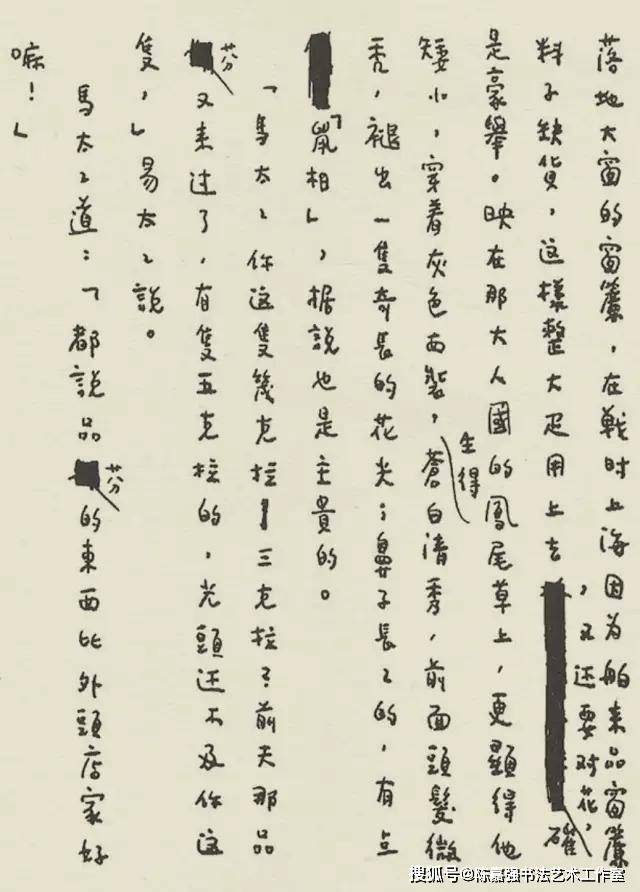 落地大窗的窗簾，在戰时上海因为舶来品窗簾
料子缺貨，这樣整大疋用上去，又还要对花，確
是豪舉。映在那大人國的鳳尾草上，更顯得他
矮小，穿着灰色西裝，生得蒼白清秀，前面頭髮微
秃，褪出一隻奇長的花尖；鼻子長々的，有点
「鼠相」，据說也是主貴的。
「馬太々你这隻幾克拉—三克拉？前天那品
芬又来过了，有隻五克拉的，光頭还不及你这
隻，」易太々說。
馬太々道：「都說品芬的東西比外頭店家好
嘛！」
搜狐号@陈嘉强书法艺术工作室